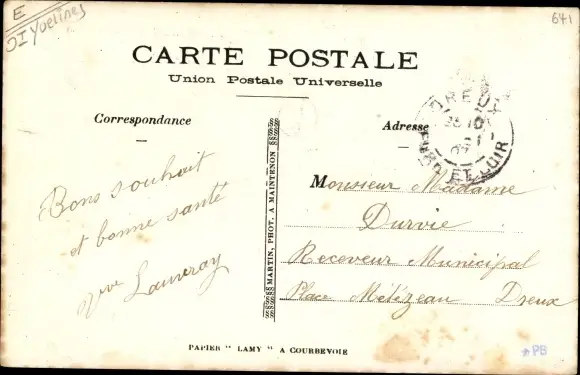 E
OI Yvelines
641
CARTE POSTALE
Union Postale Universelle
Correspondance
Adresse
DREUX
EURE ET LOIR
Bons souhait
et bonne santé
Vve Lauveray
MARTIN, PHOT. A MAINTENON
Monsieur Madame
Durvie
Receveur Municipal
Place Métézeau Dreux
PAPIER " LAMY " A COURBEVOIE
PB